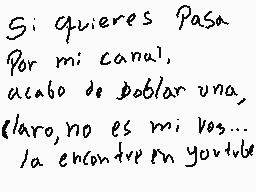 Si quieres Pasa
Por mi canal,
acabo de Doblar una,
Claro, no es mi vos...
la encontre en youtube